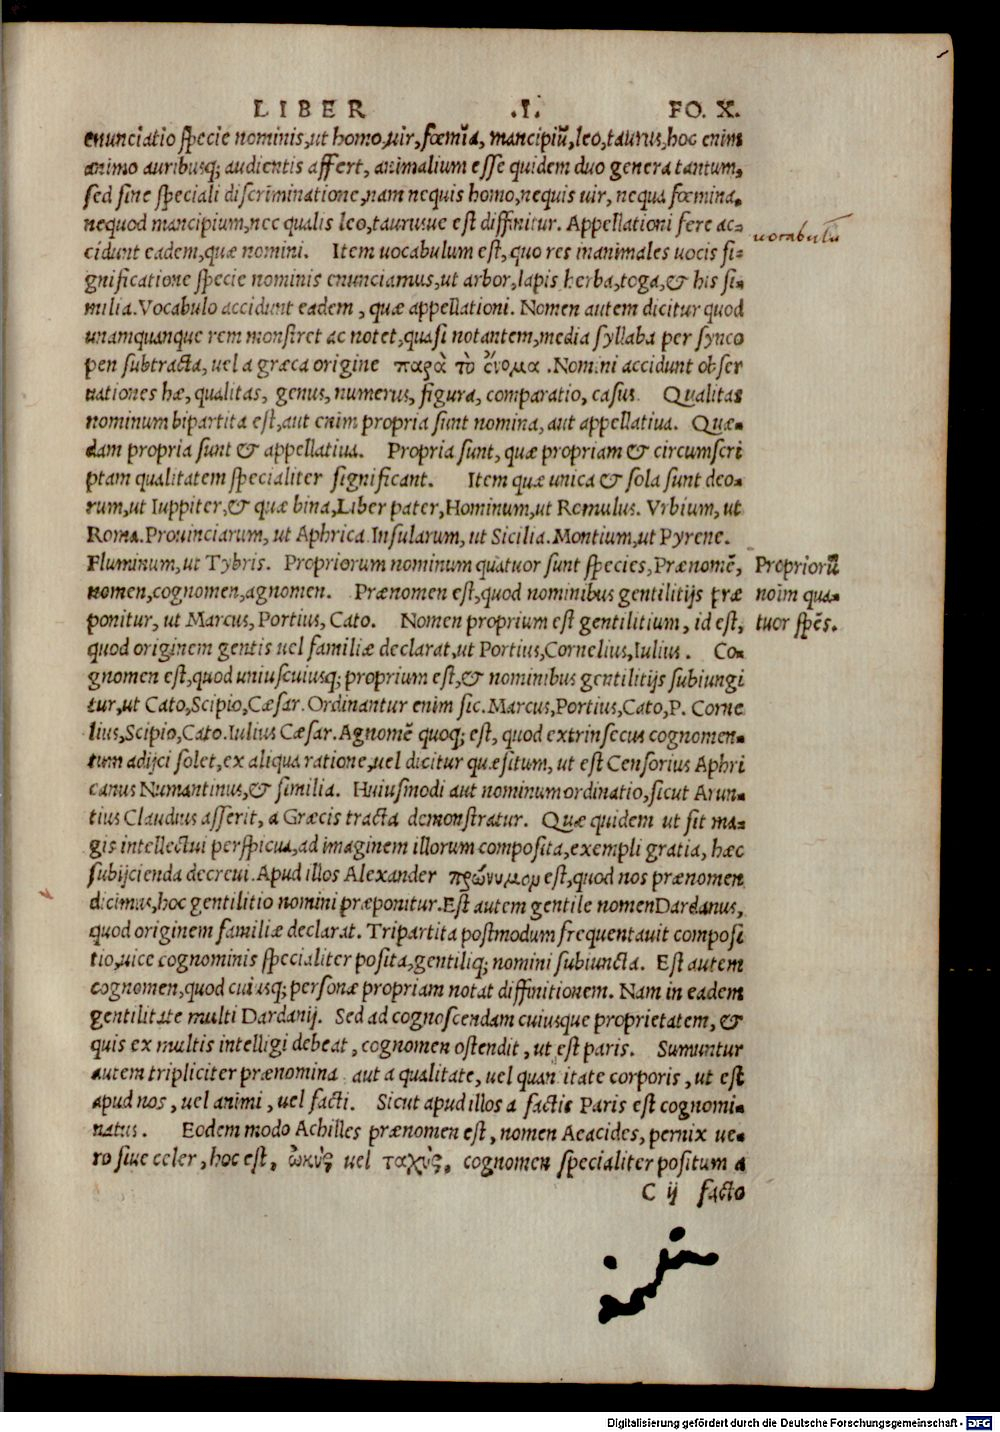 LIBER .I. FO. X.
enunciatio specie nominis, ut homo, uir, fœmīa, mancipiū, leo, taurus, hoc enim
animo auribusq; audientis affert, animalium esse quidem duo genera tantum,
sed sine speciali discriminatione, nam nequis homo, nequis uir, nequa fœmina,
nequod mancipium, nec qualis leo, taurusue est diffinitur. Appellationi fere ac-
uocabulū
cidunt eadem, quæ nomini. Item uocabulum est, quo res inanimales uocis si-
gnificatione specie nominis enunciamus, ut arbor, lapis herba, toga, & his si-
milia. Vocabulo accidunt eadem, quæ appellationi. Nomen autem dicitur quod
unamquanque rem monstret ac notet, quasi notantem, media syllaba per synco
pen subtracta, uel a græca origine παρὰ τὸ ὄνομα . Nomini accidunt obser
uationes hæ, qualitas, genus, numerus, figura, comparatio, casus. Qualitas
nominum bipartita est, aut enim propria sunt nomina, aut appellatiua. Quæ-
dam propria sunt & appellatiua. Propria sunt, quæ propriam & circumscri
ptam qualitatem specialiter significant. Item quæ unica & sola sunt deo-
rum, ut Iuppiter, & quæ bina, Liber pater, Hominum, ut Remulus. Vrbium, ut
Roma. Prouinciarum, ut Aphrica. Insularum, ut Sicilia. Montium, ut Pyrene.
Fluminum, ut Tybris. Propriorum nominum quatuor sunt species, Prænomē,
nomen, cognomen, agnomen. Prænomen est, quod nominibus gentilitijs præ
ponitur, ut Marcus, Portius, Cato. Nomen proprium est gentilitium, id est,
Propriorū
noīm qua-
tuor spēs.
quod originem gentis uel familiæ declarat, ut Portius, Cornelius, Iulius. Co-
gnomen est, quod uniuscuiusq; proprium est, & nominibus gentilitijs subiungi
tur, ut Cato, Scipio, Cæsar. Ordinantur enim sic. Marcus, Portius, Cato, P. Corne
lius, Scipio, Cato. Iulius Cæsar. Agnomē quoq; est, quod extrinsecus cognomen-
tum adijci solet, ex aliqua ratione, uel dicitur quæsitum, ut est Censorius Aphri
canus Numantinus, & similia. Huiusmodi aut nominum ordinatio, sicut Arun-
tius Claudius asserit, a Græcis tracta demonstratur. Quæ quidem ut sit ma-
gis intellectui perspicua, ad imaginem illorum composita, exempli gratia, hæc
subijcienda decreui. Apud illos Alexander πρώνυμομ est, quod nos prænomen
dicimus, hoc gentilitio nomini præponitur. Est autem gentile nomen Dardanus,
quod originem familiæ declarat. Tripartita postmodum frequentauit composi
tio, uice cognominis specialiter posita, gentiliq; nomini subiuncta. Est autem
cognomen, quod cuiusq; personæ propriam notat diffinitionem. Nam in eadem
gentilitate multi Dardanij. Sed ad cognoscendam cuiusque proprietatem, &
quis ex multis intelligi debeat, cognomen ostendit, ut est paris. Sumuntur
autem tripliciter prænomina aut a qualitate, uel quantitate corporis, ut est
apud nos, uel animi, uel facti. Sicut apud illos a factis Paris est cognomi-
natus. Eodem modo Achilles prænomen est, nomen Aeacides, pernix ue-
ro siue celer, hoc est, ὠκύς uel ταχύς, cognomen specialiter positum a
C ij facto
Digitalisierung gefördert durch die Deutsche Forschungsgemeinschaft - DFG